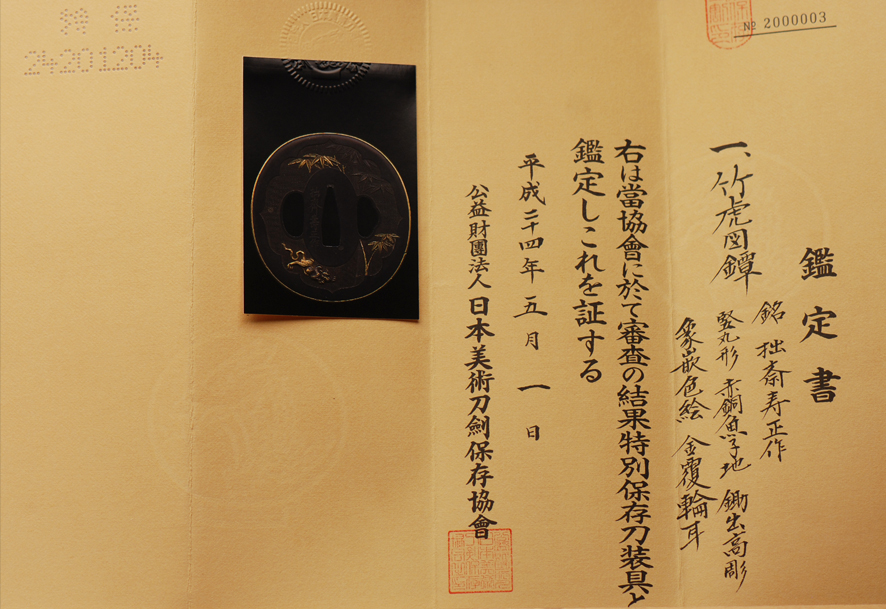 № 2000003
鑑定書
一、竹虎図鐔
銘 拙斎寿正作
竪丸形 赤銅魚子地 鋤出高彫
象嵌色絵 金覆輪耳
右は當協會に於て審査の結果特別保存刀装具と
鑑定しこれを証する
平成二十四年五月一日
公益財團法人 日本美術刀劍保存協會
特 保
24201204